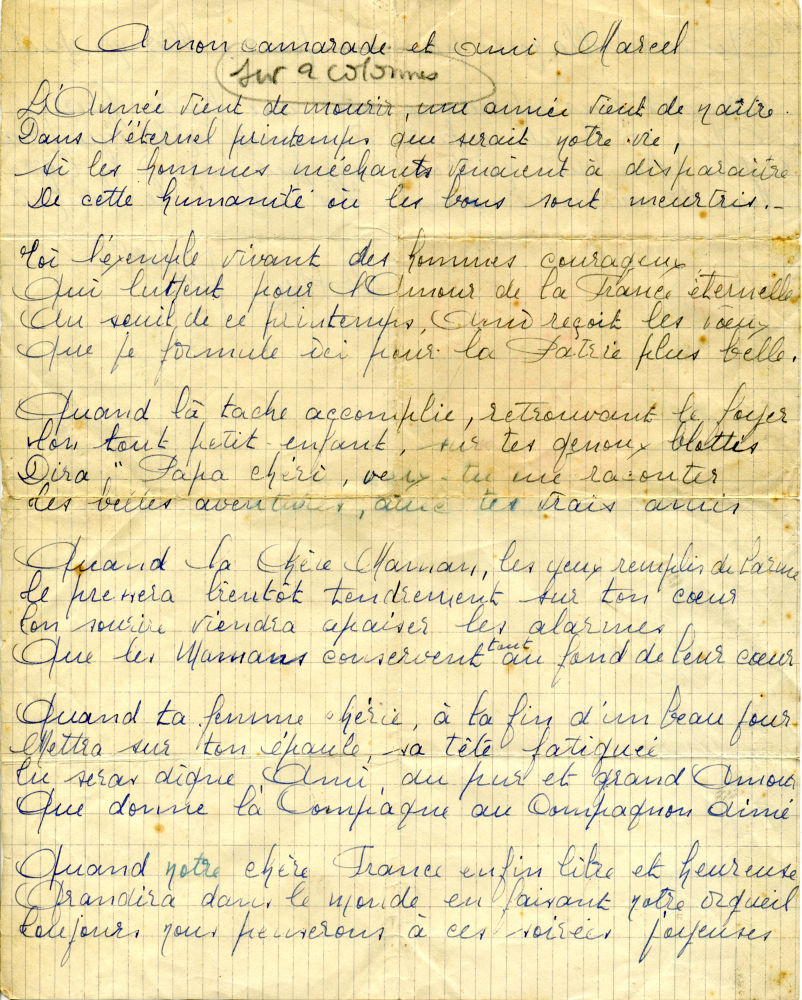 A mon camarade et ami Marcel
sur 2 colonnes
L'Année vient de mourir, une année vient de naitre.
Dans l'éternel printemps que serait notre vie,
Si les hommes méchants venaient à disparaitre
De cette humanité où les bons sont meurtris.-
Toi l'exemple vivant des hommes courageux
Qui luttent pour l'Amour de la France éternelle
Au seuil de ce printemps, Ami reçoit les vœux
Que je formule ici pour la Patrie plus belle.
Quand la tache accomplie, retrouvant le foyer
Ton tout petit enfant, sur tes genoux blottis
Dira, "Papa chéri, veux-tu me raconter
Les belles aventures, avec tes vrais amis
Quand ta Chère Maman, les yeux remplis de Larme
Te pressera bientôt tendrement sur ton cœur
Ton sourire viendra apaiser les alarmes
Que les Mamans conservent tout au fond de leur cœur
Quand ta femme chérie, à la fin d'un beau jour
Mettra sur ton épaule, sa tête fatiguée
Tu seras digne Ami, du pur et grand Amour
Que donne la Compagne au Compagnon aimé
Quand notre chère France enfin libre et heureuse
Grandira dans le monde en faisant notre orgueil
Toujours nous penserons à ces soirées joyeuses